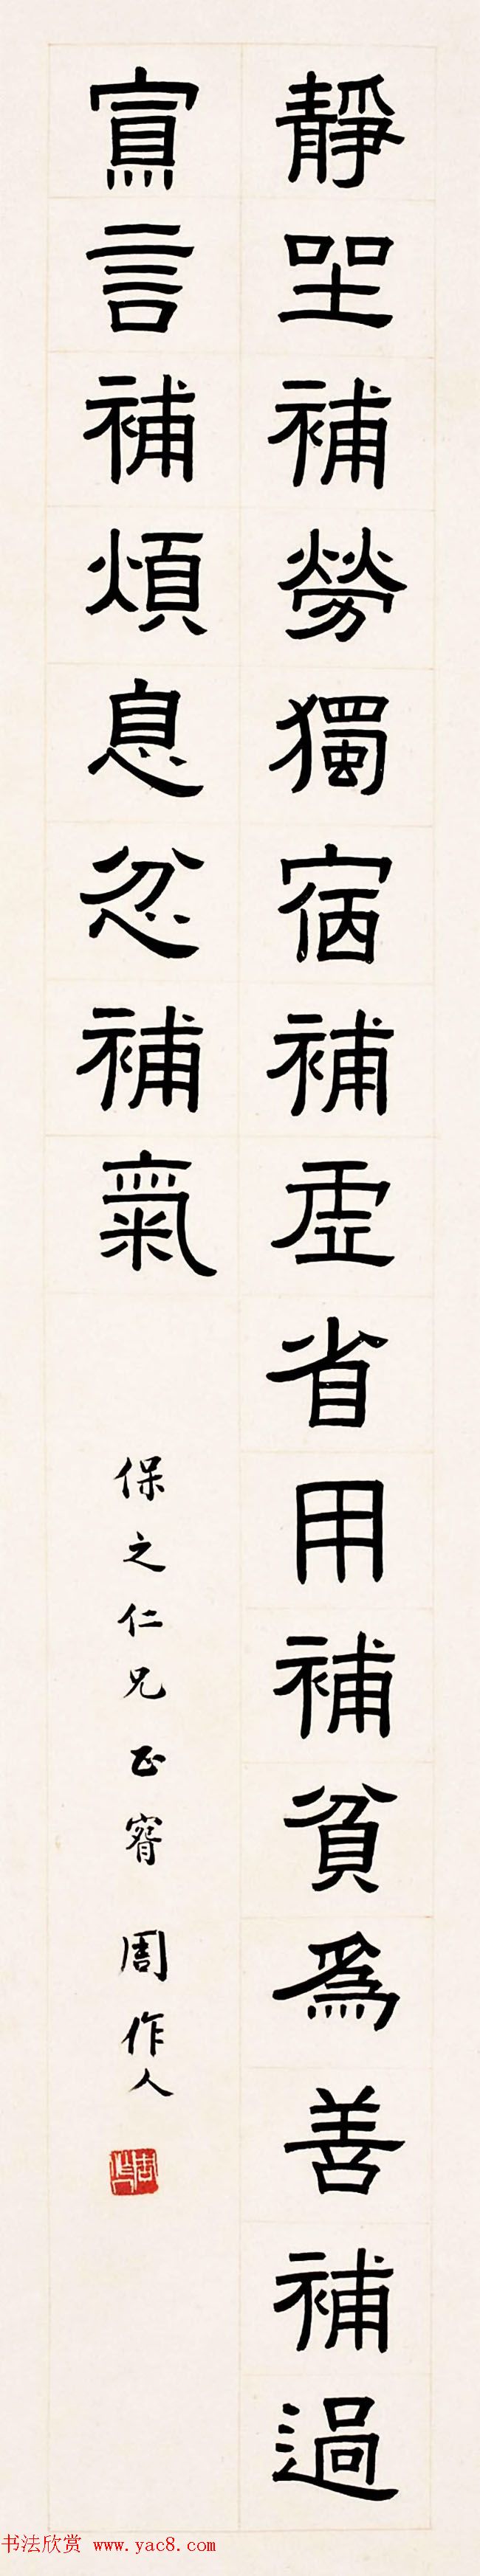 靜坐補勞獨宿補虛省用補貧為善補過
寡言補煩息忿補氣
保之仁兄正窵 周作人
书法欣赏 www.yac8.com